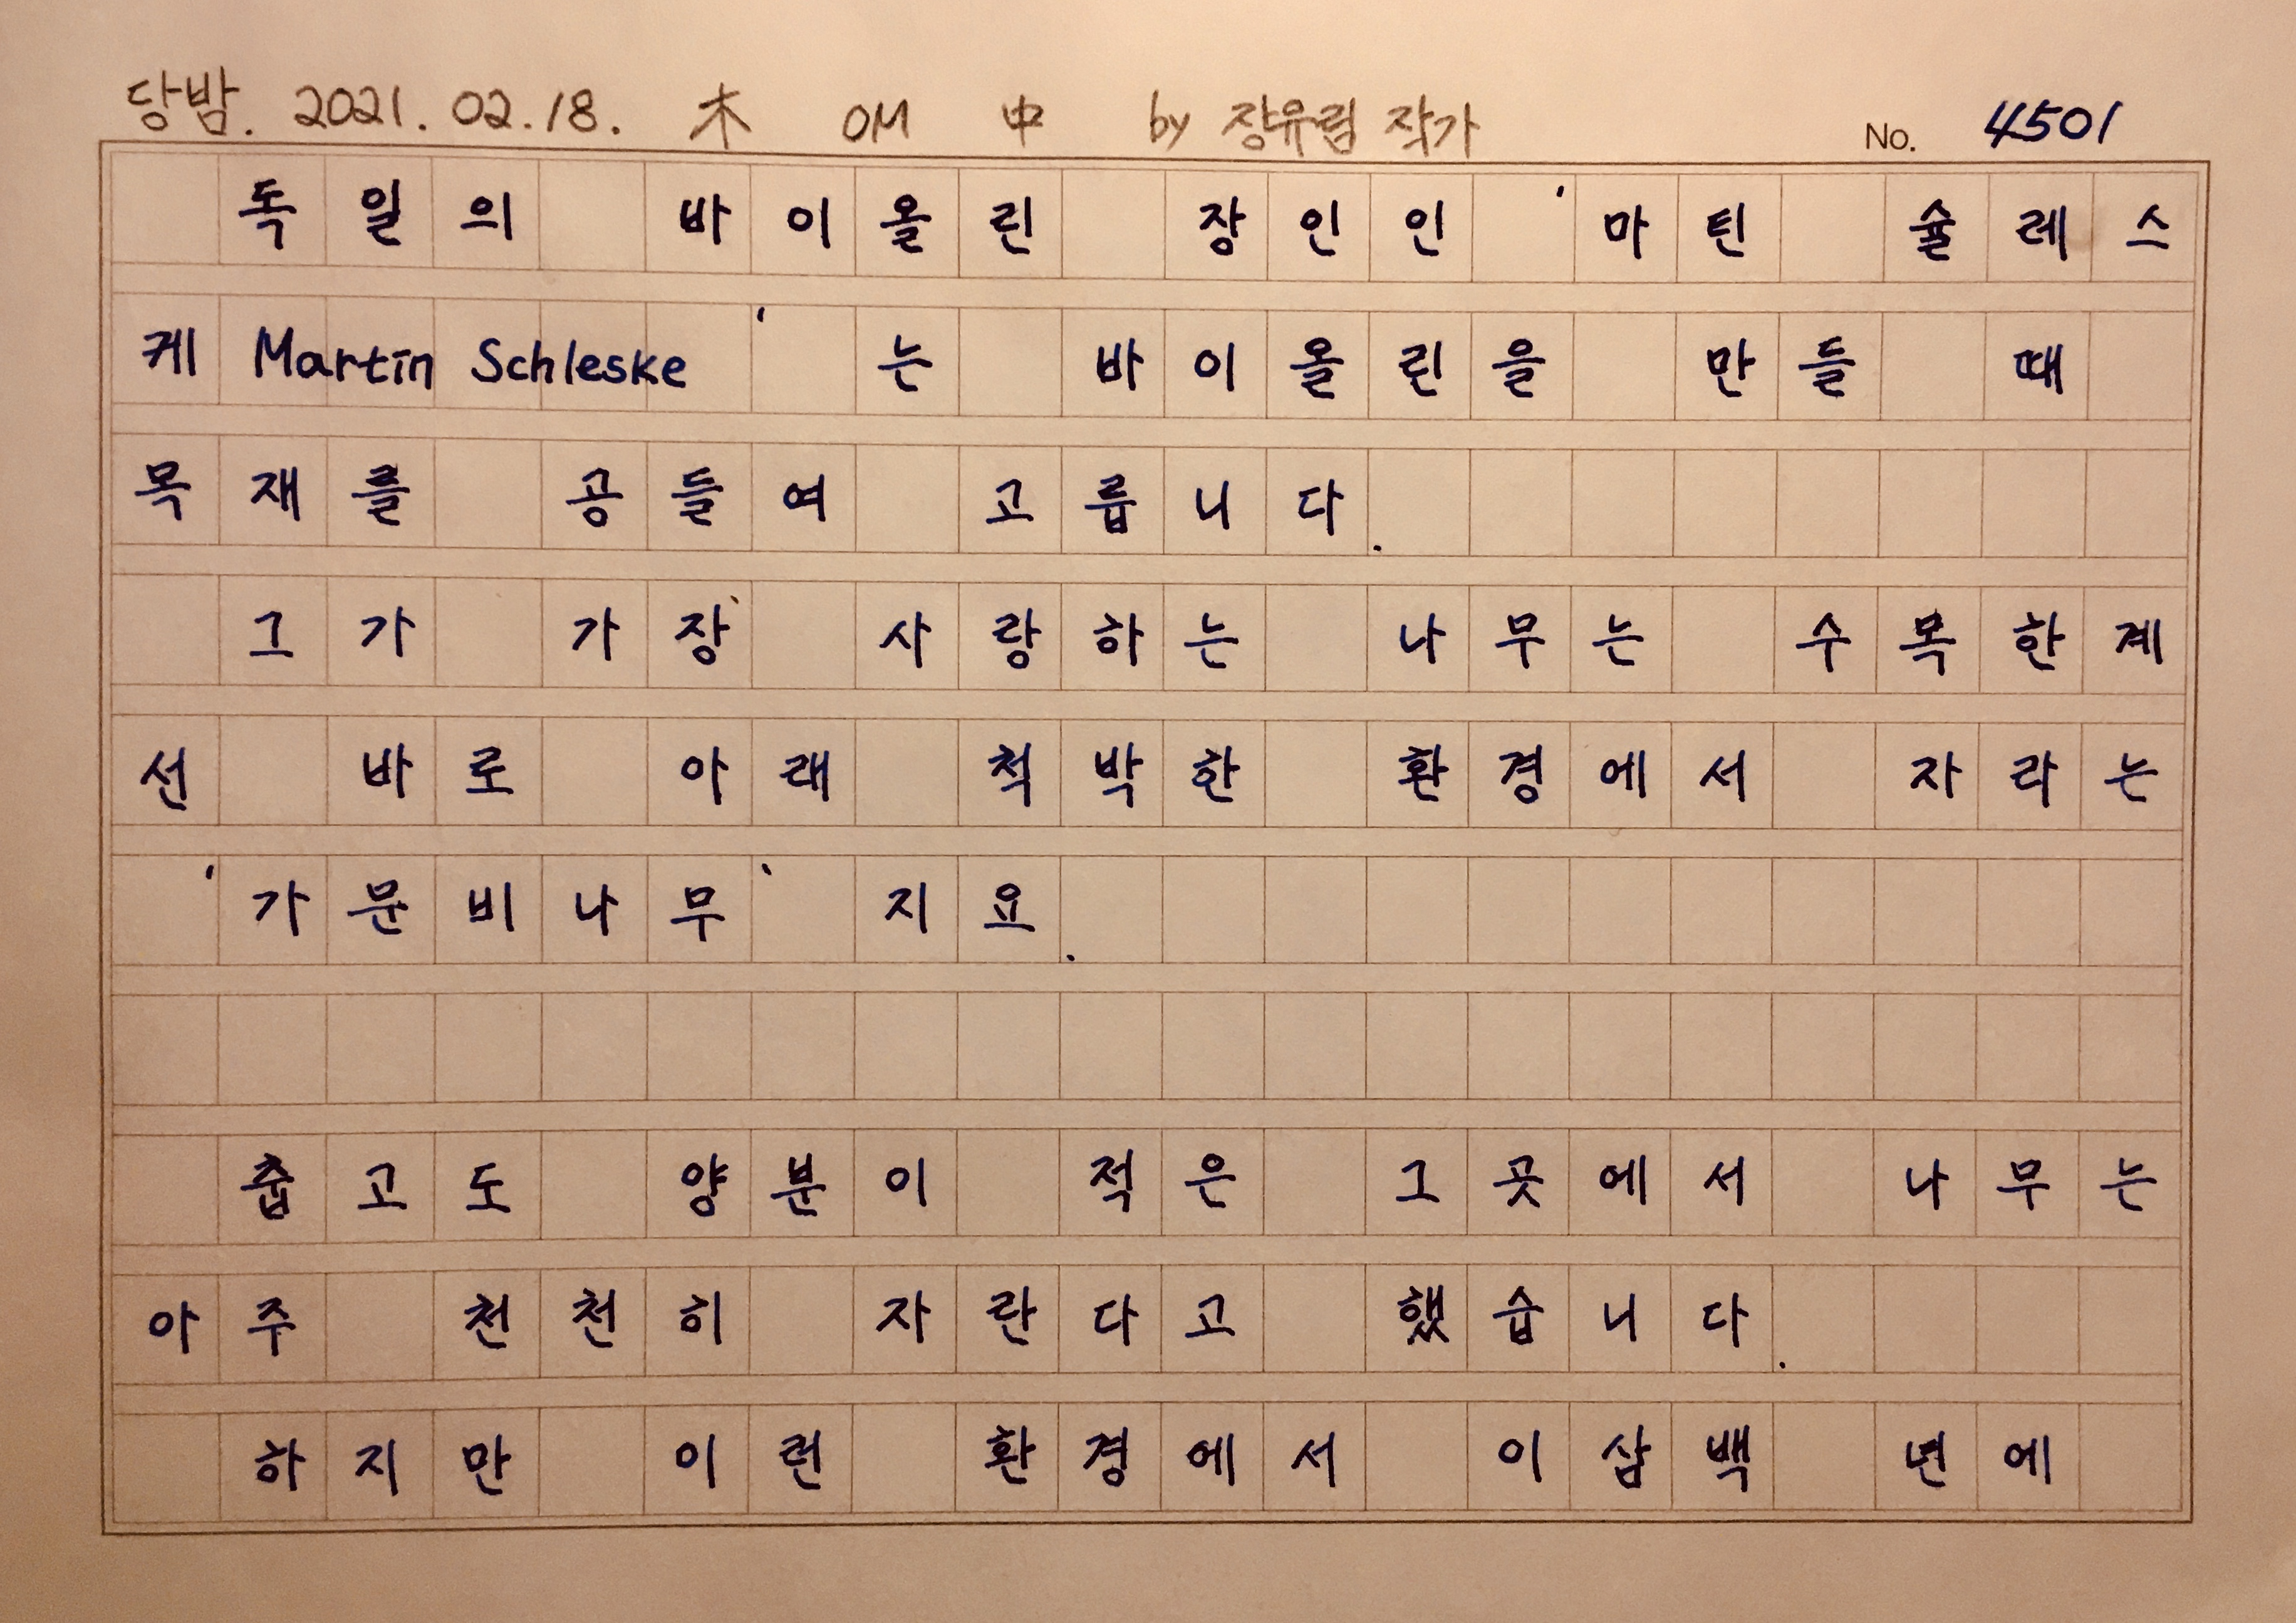 당밤. 2021. 02. 18. 木 OM 中 by 장유림 작가 No. 4501
독일의 바이올린 장인인 '마틴 슐레스
케 Martin Schleske'는 바이올린을 만들 때
목재를 공들여 고릅니다.
그가 가장 사랑하는 나무는 수목한계
선 바로 아래 척박한 환경에서 자라는
'가문비나무'지요.
춥고도 양분이 적은 그곳에서 나무는
아주 천천히 자란다고 했습니다.
하지만 이런 환경에서 이삼백 년에